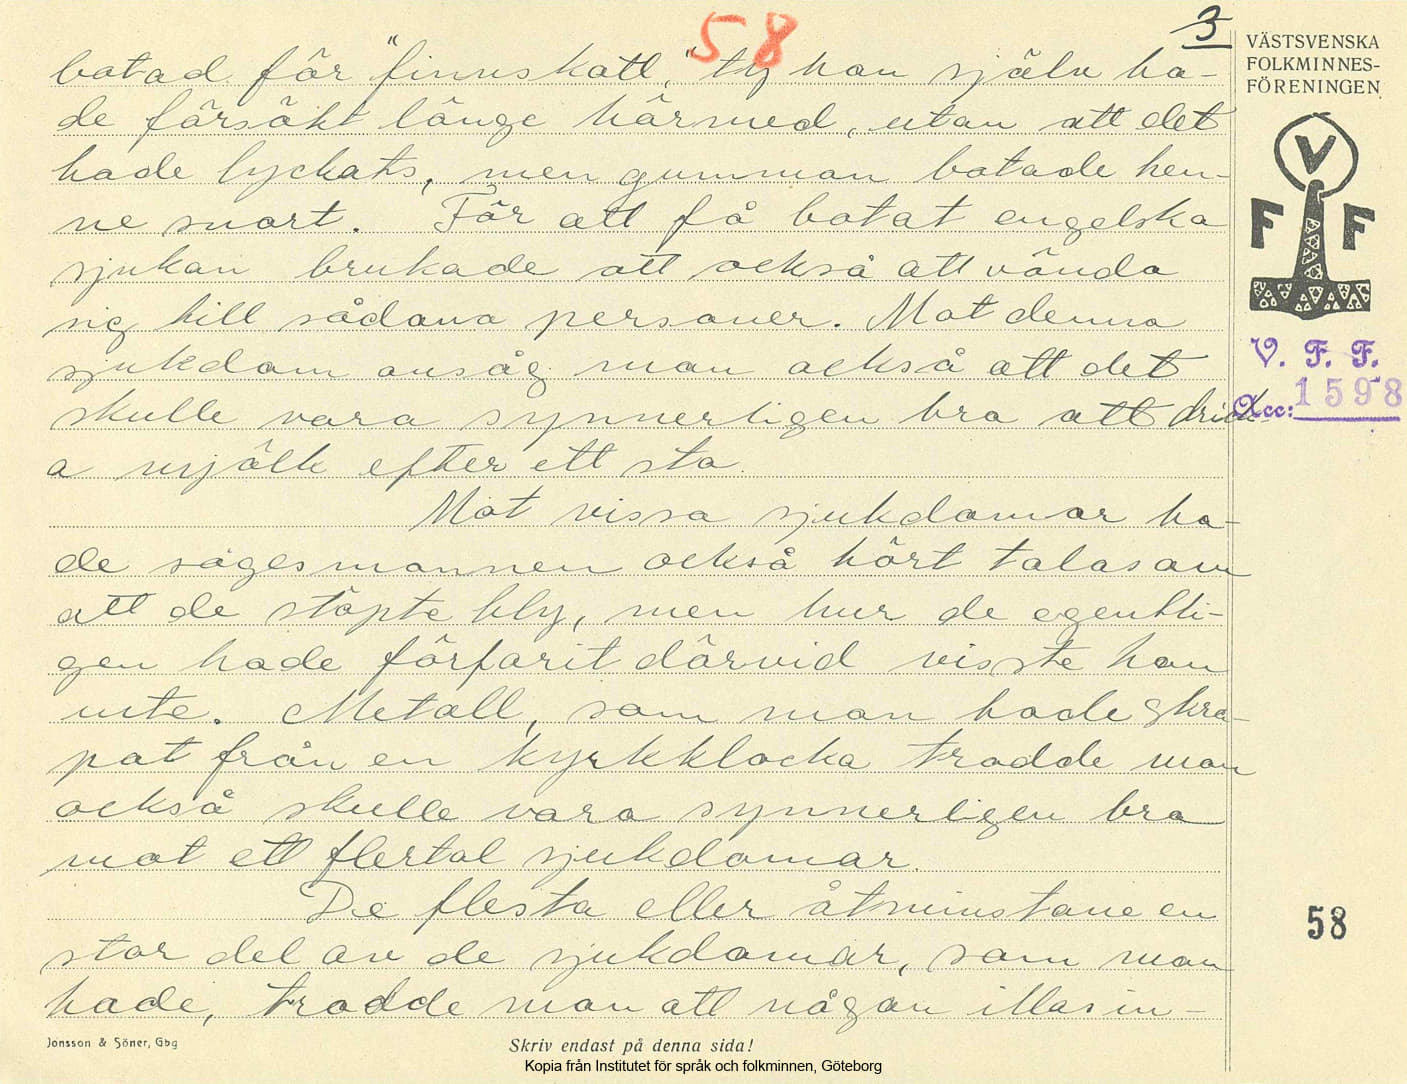 58
3
botad för "finnskott," ty han själv ha-
de försökt länge härmed, utan att det
hade lyckats, men gumman botade hen-
ne snart. För att få botat engelska
sjukan brukade att också att vända
sig till sådana personer. Mot denna
sjukdom ansåg man också att det
skulle vara synnerligen bra att drick-
a mjölk efter ett sto.
Mot vissa sjukdomar ha-
de sagesmannen också hört talas om
att de stöpte bly, men hur de egentli-
gen hade förfarit därvid visste han
inte. Metall, som man hade skra-
pat från en kyrkklocka trodde man
också skulle vara synnerligen bra
mot ett flertal sjukdomar.
De flesta eller åtminstone en
stor del av de sjukdomar, som man
hade, trodde man att någon illasin-
VÄSTSVENSKA
FOLKMINNES-
FÖRENINGEN
V
F F
V. F. F.
Acc: 1598
58
Jonsson & Söner, Gbg
Skriv endast på denna sida!
Kopia från Institutet för språk och folkminnen, Göteborg